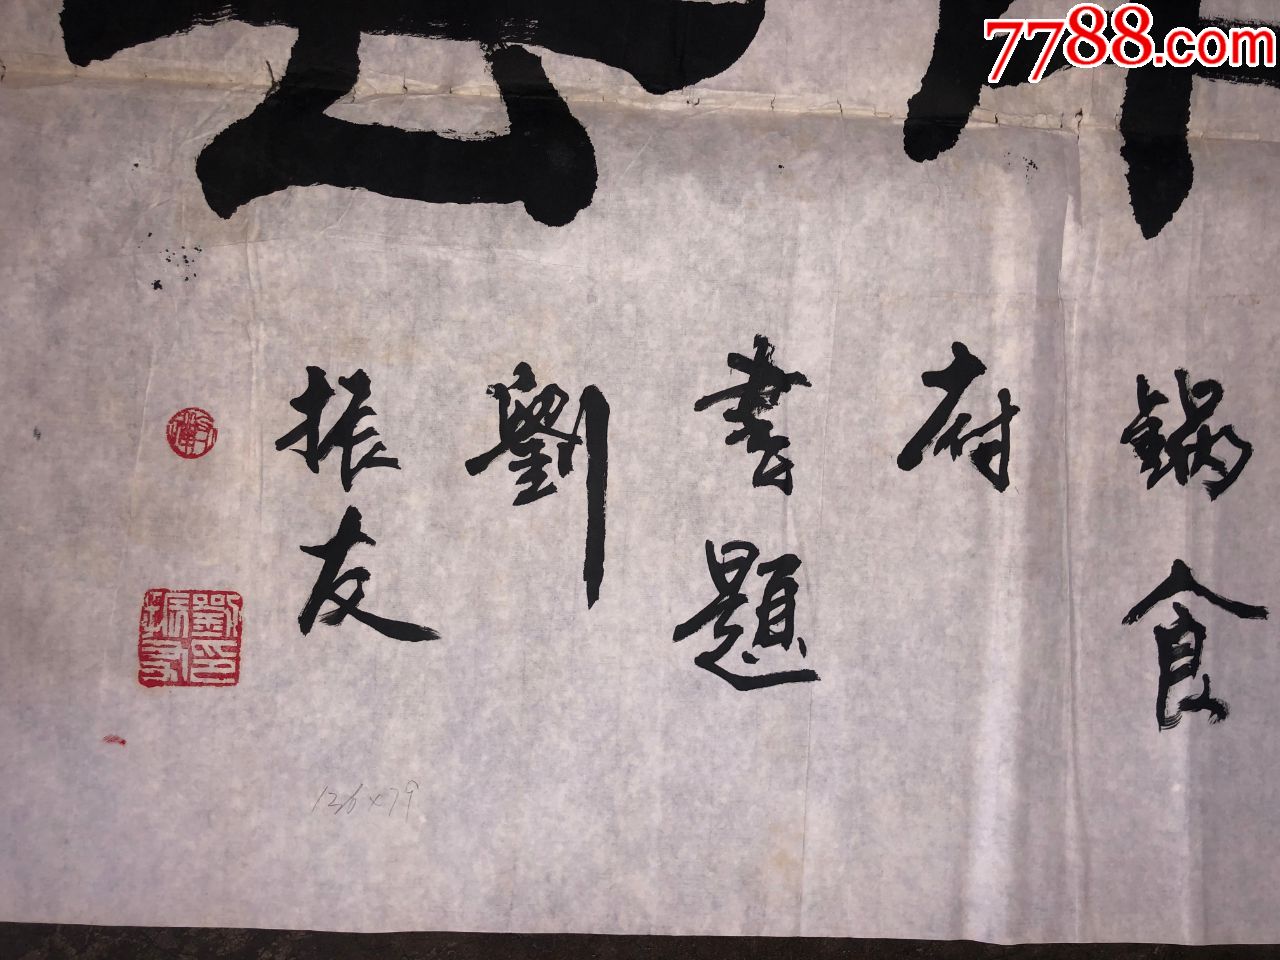 7788.com
鍋食
府
書題
劉
振友
劉印
振友
126×79